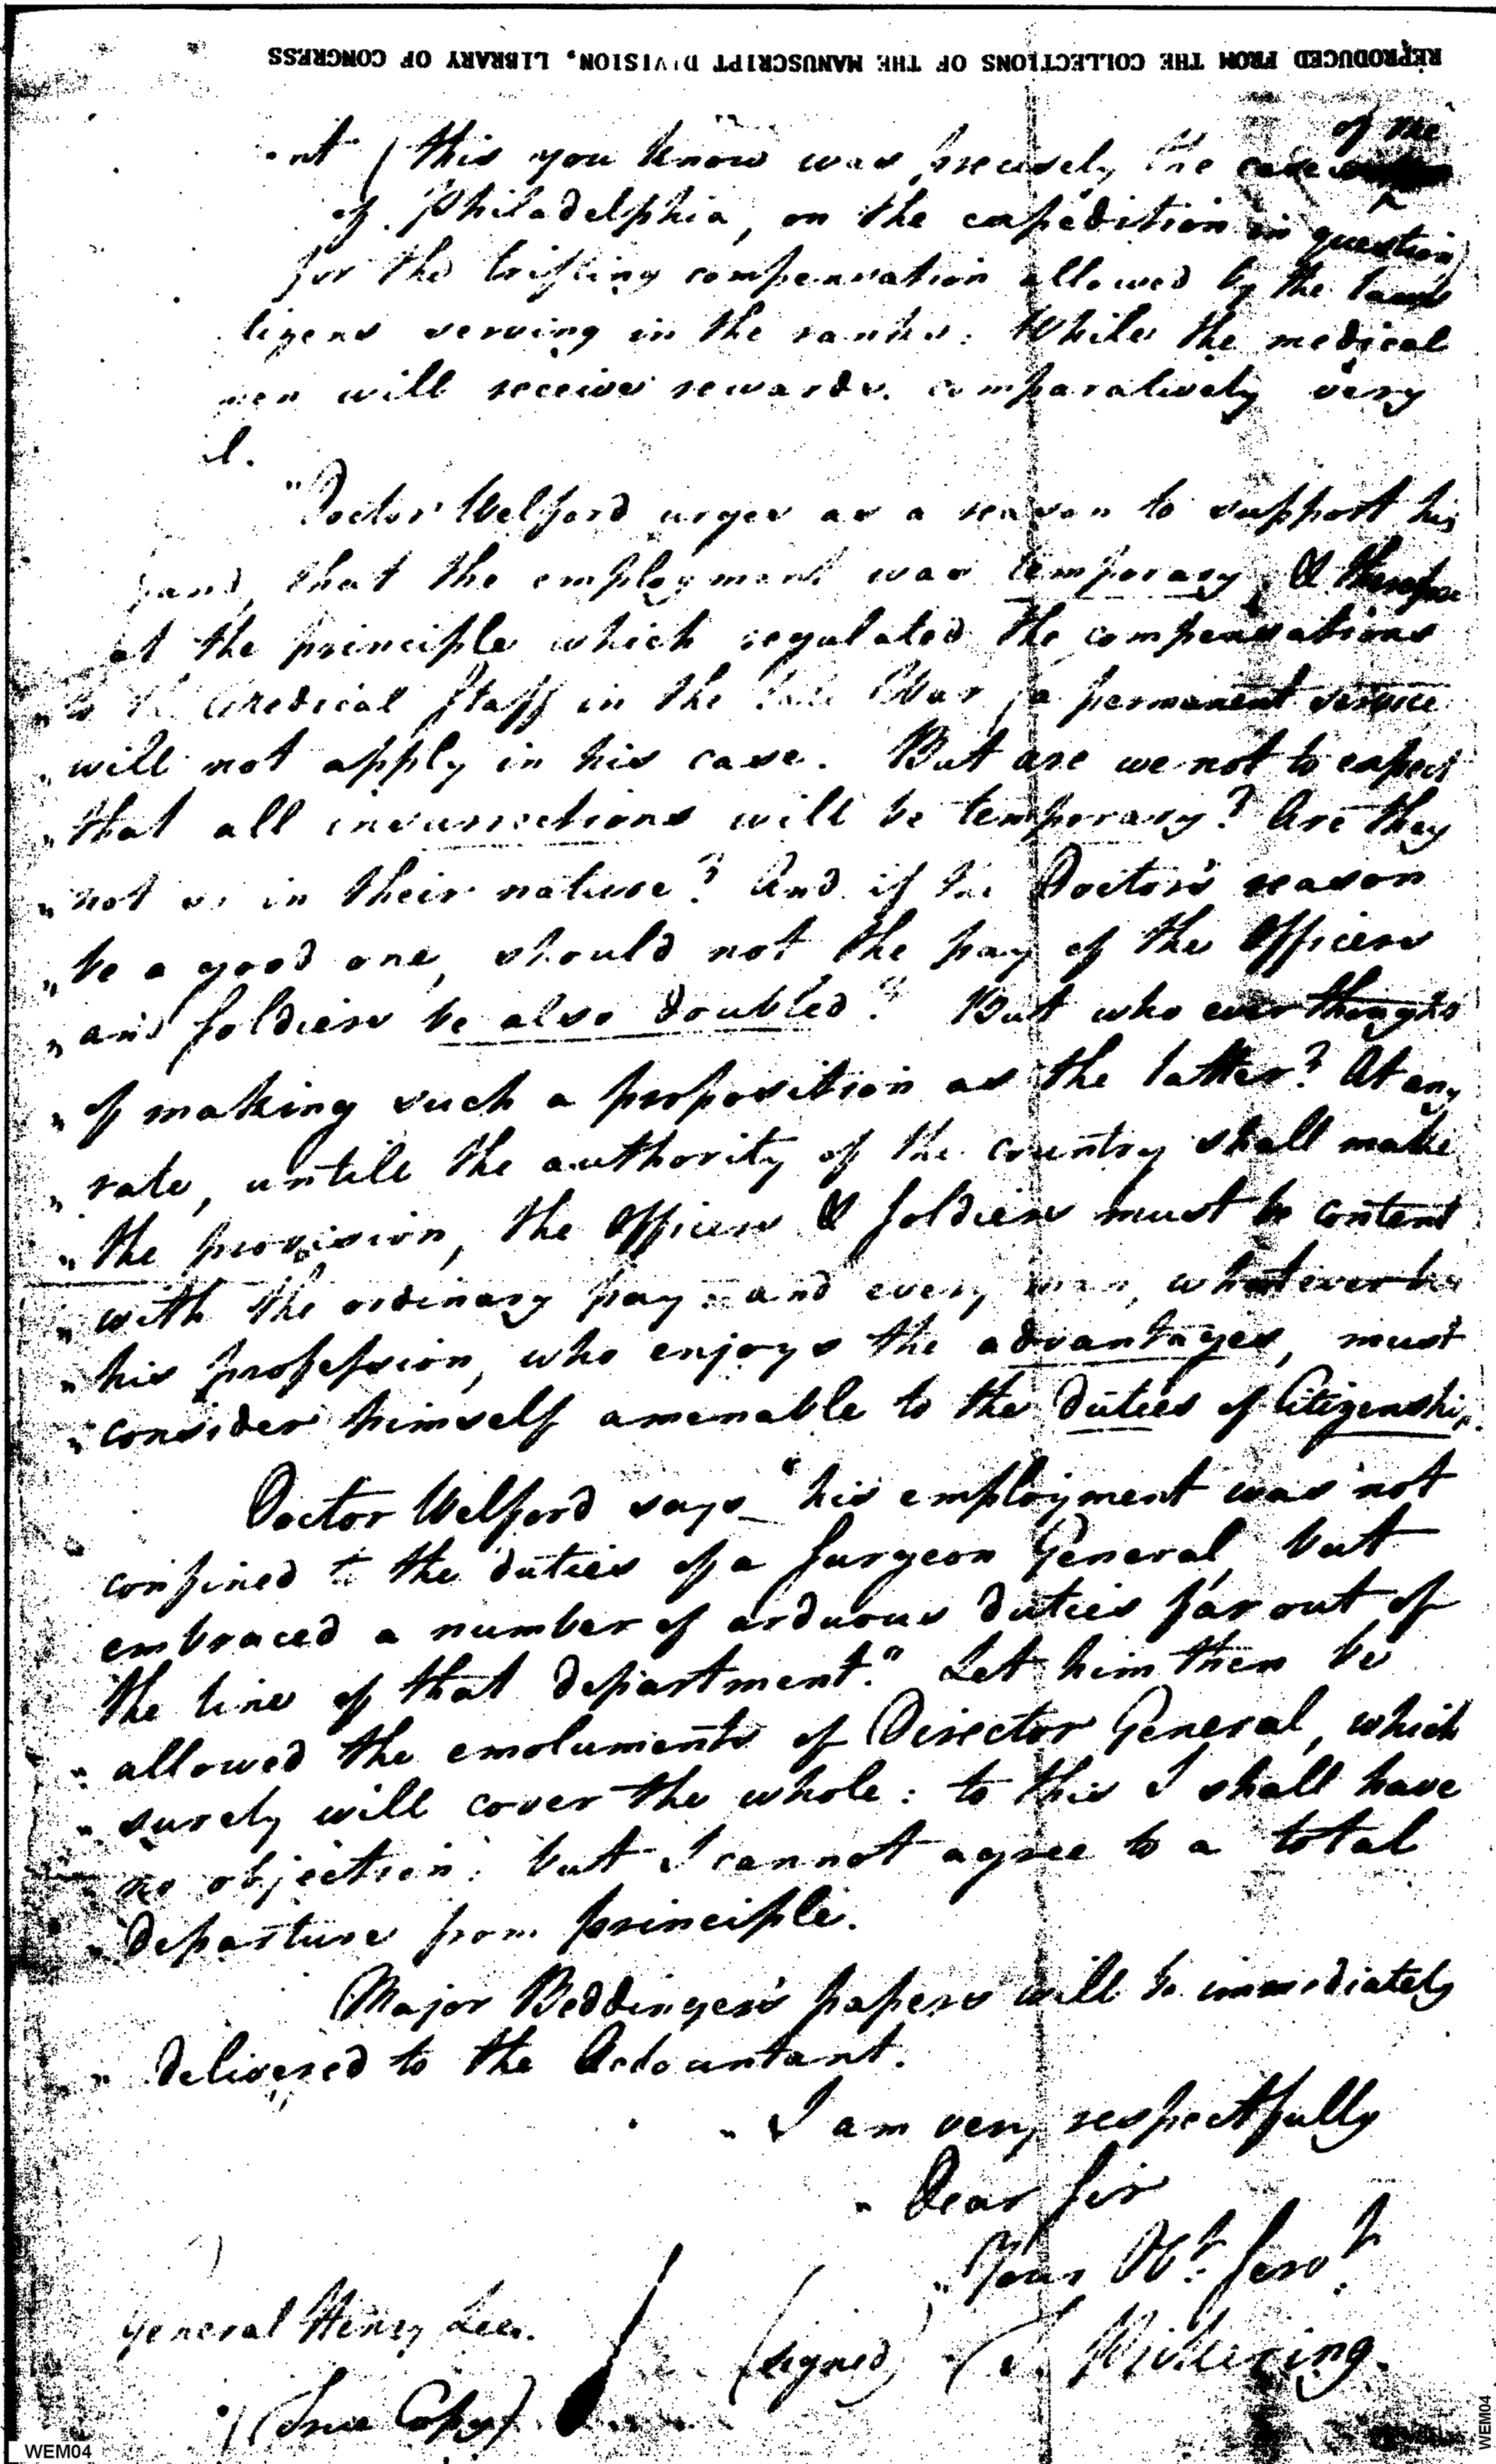 REPRODUCED FROM THE COLLECTIONS OF THE MANUSCRIPT DIVISION, LIBRARY OF CONGRESS
nt (this you know was precisely the case of the
of Philadelphia, on the expedition in question)
for the trifling compensation allowed by the laws
tizens serving in the ranks: While the medical
men will receive rewards comparatively very
l.
"Doctor Welford urges as a reason to support his
mand, that the employment was temporary, & therefore
at the principle which regulated the compensations
" to the Medical Staff in the late War, a permanent service
" will not apply in his case. But are we not to expect
" that all insurrections will be temporary? Are they
" not so in their nature? And if the Doctor's reason
" be a good one, should not the pay of the Officers
" and Soldiers be also doubled? But who ever thought
" of making such a proposition as the latter? At any
" rate, untill the authority of the country shall make
" the provision, the Officers & Soldiers must be content
" with the ordinary pay: and every man, whatever be
" his profession, who enjoys the advantages, must
" consider himself amenable to the duties of Citizenship.
Doctor Welford says "his employment was not
confined to the duties of a Surgeon General, but
embraced a number of arduous duties far out of
the line of that department." Let him then be
" allowed the emoluments of Director General, which
" surely will cover the whole: to this I shall have
" no objection: but I cannot agree to a total
" departure from principle.
Major Beddinger's papers will be immediately
" delivered to the Accountant.
" I am very respectfully
" Dear Sir
" Your Obt: Servt.
General Henry Lee.
(signed) T. Pickering.
(True Copy)
WEM04
WEM04